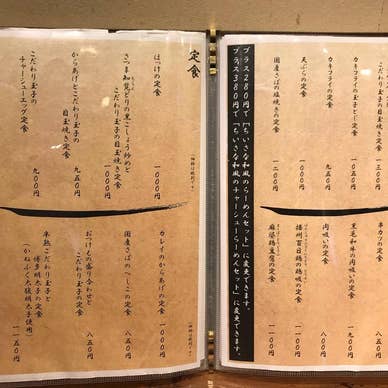 プラス280円で「ちいさな和風のらーめんセット」に変更できます。
プラス380円で「ちいさな和風のチャーシューらーめんセット」に変更できます。
カキフライの玉子とじ定食
カキフライの定食
九五〇円
天ぷらの定食
国産さばの塩焼きの定食
一二〇〇円
串カツの定食
八五〇円
黒毛和牛の肉吸いの定食
肉吸いの定食
播州百日鶏の鶏吸の定食
麻婆鶏豆腐の定食
定食
ほっけの定食
一〇〇〇円
さつま知覧どりの黒こしょう炒めと
こだわり玉子の目玉焼き定食
一〇〇〇円
からあげとこだわり玉子の
目玉焼き定食
九五〇円
こだわり玉子の
チャーシューエッグ定食
九〇〇円
カレイのからあげの定食
一〇〇〇円
国産さばのへしこの定食
八五〇円
おつけもの盛り合わせと
こだわり玉子の定食
八五〇円
半熟こだわり玉子と
博多明太子の定食
「かねふく太鼓明太子使用」
一一五〇円